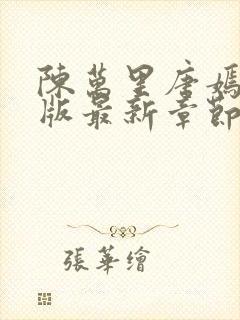 陳萬里唐嫣
版最新章節
張華繪